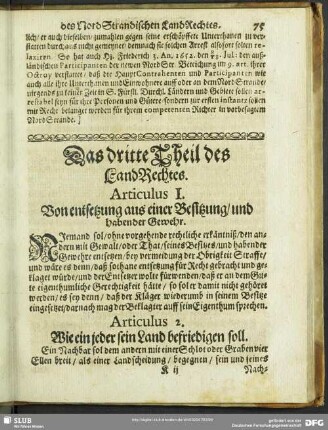 des Nord Strandischen LandRechtes. 75
lich / er auch dieselben zumahlen gegen seine erschöpffete Unterthanen zu ver-
statten durchaus nicht gemeynet / demnach sie solchen Arrest alsofort sollen
relaxiren. So hat auch Hz. Friederich 3. An. 1652. den Jul: den auß-
ländischen Participanten des newen Nord Ster Bereichung im 9. art. ihrer
Octroy verstattet / daß die HauptContrahenten und Participanten wie
auch alle ihre Unterthanen und Einwohnere auff oder an dem Strande /
nirgends zu keiner Zeit in S. Fürstl. Durchl. Landen und Gebiete sollen ar-
restabel seyn für ihre Personen und Gütere / sondern zur ersten instantz sollen
mit Recht belanget werden für ihrem competenten Richter in vorbesagtem
Nord Strande. ]
Das dritte Theil des
LandRechtes.
Articulus 1.
Von entsetzung aus einer Besitzung / und
habender Gewehr.
NIemand sol / ohne vorgehende rechtliche erkäntniß / den an-
dern mit Gewalt / oder That / seines Besitzes / und habender
Gewehre entsetzen / bey vermeidung der Obrigkeit Straffe /
und wäre es denn / daß sothane entsetzung für Recht gebracht und ge-
klaget würde / und der Entsetzer wolte fürwenden / daß er an dem Gu-
te eigenthumliche Gerechtigkeit hätte / so sol er damit nicht gehöret
werden / es sey denn / daß der Kläger wiederumb in seinem Besitze
eingesetzet / darnach mag der Beklagter auff sein Eigenthum sprechen.
Articulus 2.
Wie ein jeder sein Land befriedigen soll.
Ein Nachbar sol dem andern mit einer Schlot oder Graben vier
Ellen breit / als einer Landscheidung / begegnen / sein und jenes
K ij Nach-
SLUB
Wir führen Wissen.
gefördert von der
Deutschen Forschungsgemeinschaft